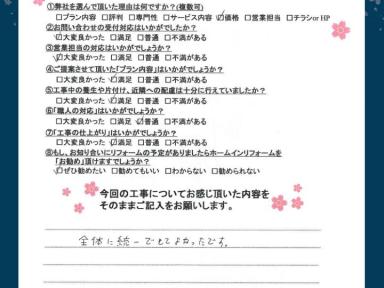 ①弊社を選んで頂いた理由は何ですか?(複数可)
□プラン内容 □評判 □専門性 □サービス内容 ☑価格 □営業担当 □チラシor HP
②お問い合わせの受付対応はいかがでしたか?
□大変良かった ☑満足 □普通 □不満がある
③営業担当の対応はいかがでしょうか?
☑大変良かった □満足 □普通 □不満がある
④ご提案させて頂いた「プラン内容」はいかがでしょうか?
□大変良かった ☑満足 □普通 □不満がある
⑤工事中の養生や片付け、近隣への配慮は十分に行えていましたか?
□大変良かった ☑満足 □普通 □不満がある
⑥「職人の対応」はいかがでしょうか?
□大変良かった □満足 ☑普通 □不満がある
⑦「工事の仕上がり」はいかがでしょうか?
□大変良かった ☑満足 □普通 □不満がある
⑧もし、お知り合いにリフォームの予定がありましたらホームインリフォームを
「お勧め」頂けますでしょうか?
☑ぜひ勧めたい □勧めてもいい □わからない □勧められない
今回の工事についてお感じ頂いた内容を
そのままご記入をお願いします。
全体に統一できてよかったです。